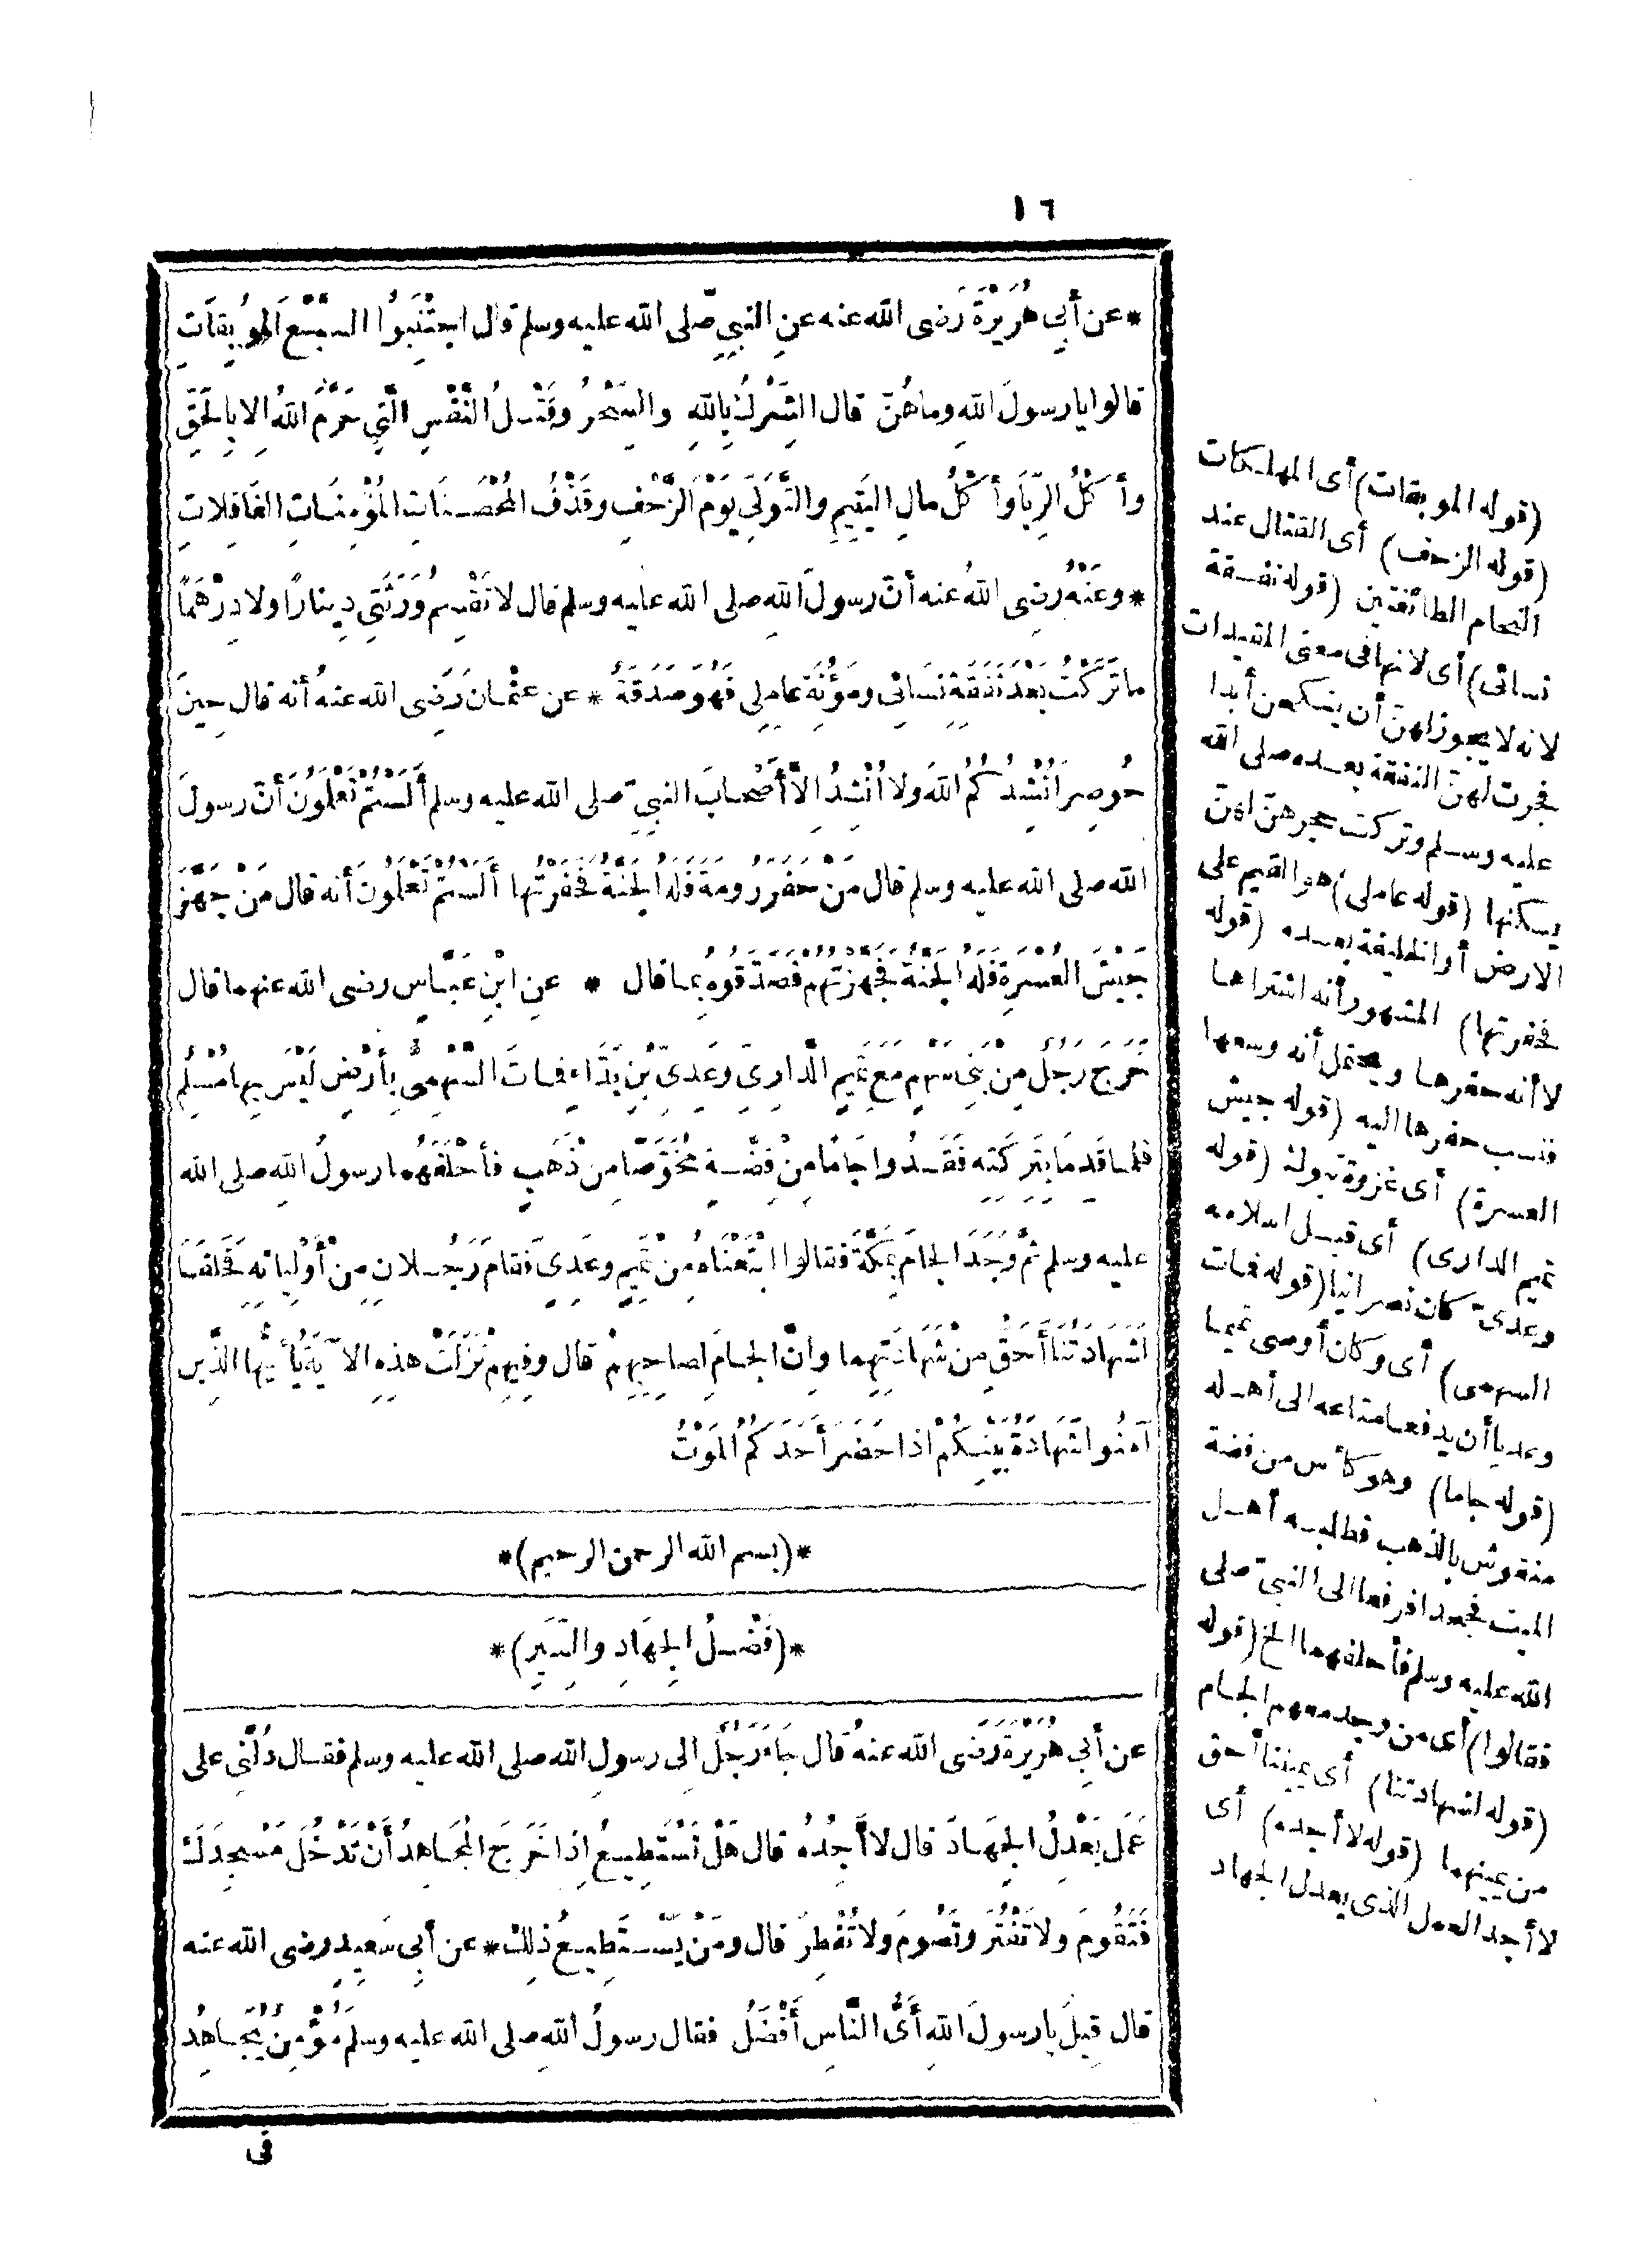 ١٦
* عن أَبِي هُرَيْرَةَ رَضى الله عنه عنِ النبيِّ صَلى الله عليه وسلم قال اجْتَنِبُوا السَّبْعَ المُوبِقَاتِ
قالوا يا رسولَ اللهِ وما هُنَّ قال الشِّرْكُ بِاللهِ والسِّحْرُ وقَتْلُ النَّفْسِ الَّتِي حَرَّمَ اللهُ الا بِالحَقِّ
وأَكْلُ الرِّبَا وأَكْلُ مالِ اليَتِيمِ والتَّوَلِّى يَوْمَ الزَّحْفِ وقَذْفُ المُحْصَنَاتِ المُؤْمِنَاتِ الغَافِلاتِ
* وعَنْهُ رضِى اللهُ عنه أنّ رسولَ اللهِ صلى الله عليه وسلم قال لا تَقْسِمُ وَرَثَتِى دِينارًا ولا دِرْهَمًا
ما تَرَكْتُ بَعْدَ نَفَقَةِ نِسَائى ومَؤُنَةِ عامِلِى فَهُوَ صَدَقَةٌ * عن عثْمانَ رَضِى الله عنهُ أنه قال حِينَ
حُوصِرَ أَنْشِدُكُمُ اللهَ ولا أَنْشِدُ الاَّ أَصْحابَ النبِيِّ صلى الله عليه وسلم أَلَسْتُمْ تَعْلَمُونَ أنّ رسولَ
الله صلى الله عليه وسلم قال مَنْ حَفَرَ رُومَةَ فَلَهُ الجَنةُ فَحَفَرْتُها أَلَسْتُمْ تَعْلَمُونَ أنه قال مَنْ جَهَّزَ
جَيْشَ العُسْرَةِ فَلَهُ الجَنَّةُ فَجَهَّزْتُهُم فَصَدَّقُوهُ بما قال * عنِ ابْنِ عَبَّاسٍ رضى الله عنهما قال
خَرَجَ رَجُلٌ مِنْ بَنِى سَهْمٍ مَعَ تَمِيمٍ الدَّارِىِّ وعَدِىِّ بْنِ بَدَّاءٍ فماتَ السَّهْمِىُّ بِأَرْضٍ لَيْسَ بِها مُسْلِمٌ
فلما قَدِمَا بِتَرِكَتِهِ فَقَدُوا جَامًا مِنْ فِضَّةٍ مُخَوَّصًا مِنْ ذَهَبٍ فأَحْلَفَهُما رسولُ اللهِ صلى الله
عليه وسلم ثُمَّ وُجِدَ الجامُ بِمَكَّةَ فقالوا ابْتَعْنَاهُ مِنْ تَمِيمٍ وعَدِىٍّ فقَامَ رَجُلانِ مِنْ أَوْلِيائِهِ فَحَلَفَا
لَشَهَادَتُنَا أَحَقُّ مِنْ شَهَادَتِهِما وإِنَّ الجامَ لِصاحِبِهِمْ قال وفِيهِمْ نَزَلَتْ هذِهِ الآيَةُ يَا أَيُّها الَّذِين
آمَنُوا شَهادَةُ بَيْنِكُمْ اذا حَضَرَ أَحَدَكُمُ المَوْتُ
*(بسم الله الرحمن الرحيم)*
*(فَضْلُ الجِهَادِ والسِّيَرِ)*
عن أَبِي هُرَيْرَةَ رَضى الله عنهُ قال جَاءَ رَجُلٌ إلى رسولِ الله صلى الله عليه وسلم فقال دُلَّنِى على
عَمَلٍ يَعْدِلُ الجِهَادَ قال لا أَجِدُهُ قال هَلْ تَسْتَطِيعُ إِذَا خَرَجَ المُجَاهِدُ أَنْ تَدْخُلَ مَسْجِدَكَ
فَتَقُومَ ولا تَفْتُرَ وتَصُومَ ولا تُفْطِرَ قال ومَنْ يَسْتَطِيعُ ذلِكَ * عن أَبِى سَعِيدٍ رضى الله عنه
قال قِيلَ يا رسولَ اللهِ أَىُّ النَّاسِ أَفْضَلُ فقال رسولُ اللهِ صلى الله عليه وسلم مُؤْمِنٌ يُجَاهِدُ
فى
(قوله الموبقات) أى المهلكات
(قوله الزحف) أى القتال عند
التحام الطائفتين (قوله نفقة
نسائى) أى لانها فى معنى المقيدات
لانه لا يجوز لهنّ أن ينكحن أبدا
فجرت لهنّ النفقة بعده صلى الله
عليه وسلم وتركت حجرهنّ لهنّ
يسكنها (قوله عاملى) هو القيم على
الارض أو الخليفة بعده (قوله
فحفرتها) المشهور أنه اشتراها
لا أنه حفرها ويحتمل أنه وسعها
فنسب حفرها اليه (قوله جيش
العسرة) أى غزوة تبوك (قوله
تميم الدارى) أى قبل اسلامه
وعدىّ كان نصرانيا (قوله فمات
السهمى) أى وكان أوصى تميما
وعديا أن يدفعا متاعه الى أهله
(قوله جاما) وهو كأس من فضة
منقوش بالذهب فطالبه أهل
الميت فجحدا فرفعا الى النبىّ صلى
الله عليه وسلم فأحلفهما الخ (قوله
فقالوا) أى من وجد معهم الجام
(قوله لشهادتنا) أى يميننا أحق
من يمينهما (قوله لا أجده) أى
لا أجد العمل الذى يعدل الجهاد